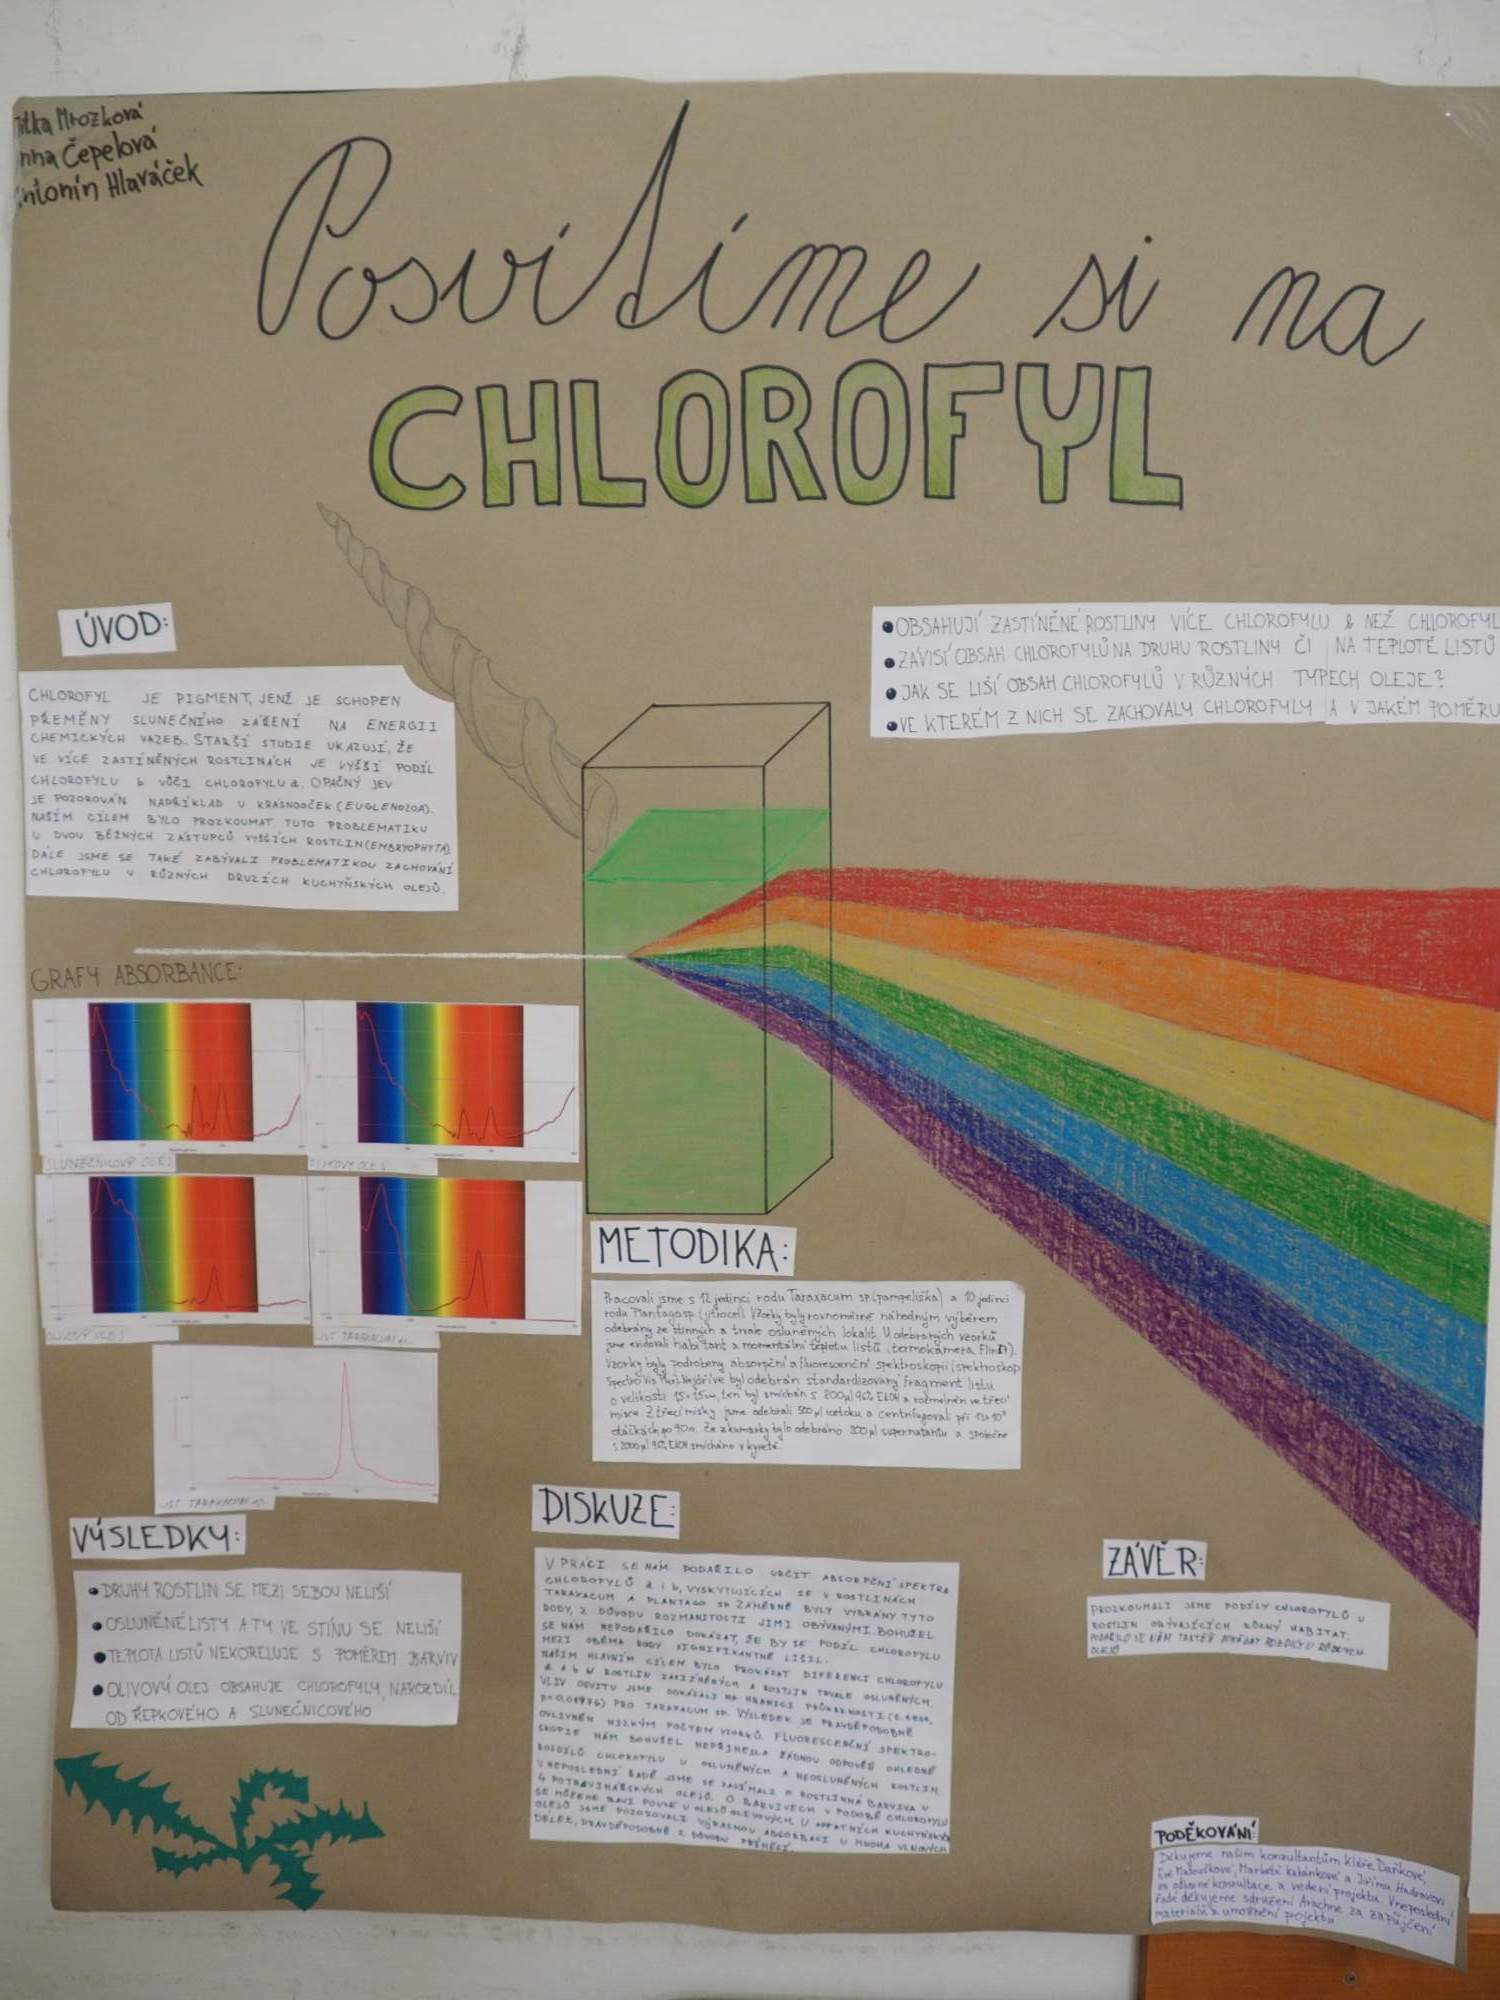 Mrozková
Čepelová
Hlaváček
Posvítíme si na
CHLOROFYL
ÚVOD:
CHLOROFYL JE PIGMENT, JENŽ JE SCHOPEN
PŘEMĚNY SLUNEČNÍHO ZÁŘENÍ NA ENERGII
CHEMICKÝCH VAZEB. STARŠÍ STUDIE UKAZUJÍ, ŽE
VE VÍCE ZASTÍNĚNÝCH ROSTLINÁCH JE VYŠŠÍ PODÍL
CHLOROFYLU b VŮČI CHLOROFYLU a. OPAČNÝ JEV
JE POZOROVÁN NAPŘÍKLAD U KRÁSNOOČEK (EUGLENOZOA).
NAŠÍM CÍLEM BYLO PROZKOUMAT TUTO PROBLEMATIKU
U DVOU BĚŽNÝCH ZÁSTUPCŮ VYŠŠÍCH ROSTLIN (EMBRYOPHYTA)
DÁLE JSME SE TAKÉ ZABÝVALI PROBLEMATIKOU ZACHOVÁNÍ
CHLOROFYLU V RŮZNÝCH DRUZÍCH KUCHYŇSKÝCH OLEJŮ.
OBSAHUJÍ ZASTÍNĚNÉ ROSTLINY VÍCE CHLOROFYLU b NEŽ CHLOROFYL
ZÁVISÍ OBSAH CHLOROFYLŮ NA DRUHU ROSTLINY ČI NA TEPLOTĚ LISTŮ
JAK SE LIŠÍ OBSAH CHLOROFYLŮ V RŮZNÝCH TYPECH OLEJE?
VE KTERÉM Z NICH SE ZACHOVALY CHLOROFYLY A V JAKÉM POMĚRU
GRAFY ABSORBANCE:
SLUNEČNICOVÝ OLEJ
OLIVOVÝ OLEJ
LIST TARAXACUM sp.
LIST TARAXACUM sp.
METODIKA:
Pracovali jsme s 12 jedinci rodu Taraxacum sp. (pampeliška) a 10 jedinci
rodu Plantago sp. (jitrocel). Vzorky byly rovnoměrně náhodným výběrem
odebrány ze stinných a trvale osluněných lokalit. U odebraných vzorků
jsme evidovali habitant a momentální teplotu listů (termokamera Flir).
Vzorky byly podrobeny absorpční a fluorescenční spektroskopii (spektroskop
Spectro Vis Plus). Nejdříve byl odebrán standardizovaný fragment listu
o velikosti 1,5 x 1,5 cm, ten byl smíchán s 200 µl 96% EtOH a rozmělněn ve třecí
misce. Z třecí misky jsme odebrali 500 µl roztoku a centrifugovali při
otáčkách po 90 s. Ze zkumavky bylo odebráno 200 µl supernatantu a společně
s 2000 µl 96% EtOH smícháno v kyvetě.
VÝSLEDKY:
DRUHY ROSTLIN SE MEZI SEBOU NELIŠÍ
OSLUNĚNÉ LISTY A TY VE STÍNU SE NELIŠÍ
TEPLOTA LISTŮ NEKORELUJE S POMĚREM BARVIV
OLIVOVÝ OLEJ OBSAHUJE CHLOROFYLY, NAROZDÍL
OD ŘEPKOVÉHO A SLUNEČNICOVÉHO
DISKUZE:
V PRÁCI SE NÁM PODAŘILO URČIT ABSORPČNÍ SPEKTRA
CHLOROFYLŮ a i b, VYSKYTUJÍCÍCH SE V ROSTLINÁCH
TARAXACUM A PLANTAGO SP. ZÁMĚRNĚ BYLY VYBRÁNY TYTO
RODY, Z DŮVODU ROZMANITOSTI JIMI OBÝVANÝMI. BOHUŽEL
SE NÁM NEPODAŘILO DOKÁZAT, ŽE BY SE PODÍL CHLOROFYLU
MEZI OBĚMA RODY SIGNIFIKANTNĚ LIŠIL.
NAŠIM HLAVNÍM CÍLEM BYLO PROKÁZAT DIFERENCI CHLOROFYLU
a A b U ROSTLIN ZASTÍNĚNÝCH A ROSTLIN TRVALE OSLUNĚNÝCH.
VLIV OSVITU JSME DOKÁZALI NA HRANICI PRŮKAZNOSTI
PRO TARAXACUM SP. VÝSLEDEK JE PRAVDĚPODOBNĚ
OVLIVNĚN NÍZKÝM POČTEM VZORKŮ. FLUORESCENČNÍ SPEKTRO-
SKOPIE NÁM BOHUŽEL NEPŘINESLA ŽÁDNOU ODPOVĚĎ OHLEDNĚ
ROZDÍLŮ CHLOROFYLU U OSLUNĚNÝCH A NEOSLUNĚNÝCH ROSTLIN.
V NEPOSLEDNÍ ŘADĚ JSME SE ZAJÍMALI O ROSTLINNÁ BARVIVA U
4 POTRAVINÁŘSKÝCH OLEJŮ. O BARVIVECH V PODOBĚ CHLOROFYLU
SE MŮŽEME BAVIT POUZE U OLEJŮ OLIVOVÝCH. U OSTATNÍCH KUCHYŇSKÝCH
OLEJŮ JSME POZOROVALI VÝRAZNOU ABSORBACI U MNOHA VLNOVÝCH
DÉLEK, PRAVDĚPODOBNĚ Z DŮVODU PŘÍMĚSÍ.
ZÁVĚR:
PROZKOUMALI JSME PODÍLY CHLOROFYLŮ U
ROSTLIN OBÝVAJÍCÍCH RŮZNÝ HABITAT.
PODAŘILO SE NÁM TAKTÉŽ DOKÁZAT ROZDÍLY U RŮZNÝCH
OLEJŮ
PODĚKOVÁNÍ:
Děkujeme našim konzultantům Kláře Daňkové,
Evě Matouškové, Markétě Kubánkové a Jiřímu Hadravovi
za odborné konzultace a vedení projektu. V neposlední
řadě děkujeme sdružení Arachne za zapůjčení
materiálu a umožnění projektu